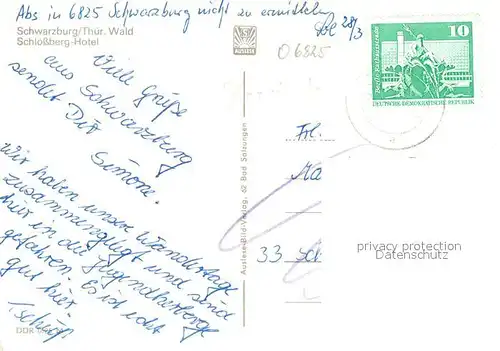 Abs in 6825 Schwarzburg nicht zu ermitteln
28/3
Schwarzburg/Thür. Wald
Schloßberg-Hotel
AUSLESE
O 6825
10
DEUTSCHE DEMOKRATISCHE REPUBLIK
Viele Grüße
aus Schwarzburg
sendet Dir
Simone
Wir haben unsere Wandertage
zusammengelegt und sind
hier in die Jugendherberge
gefahren. Es ist echt
gut hier.
Tschüß
Auslese-Bild-Verlag, 62 Bad Salzungen
Frl.
Ma
33 Sc
privacy protection
Datenschutz
DDR